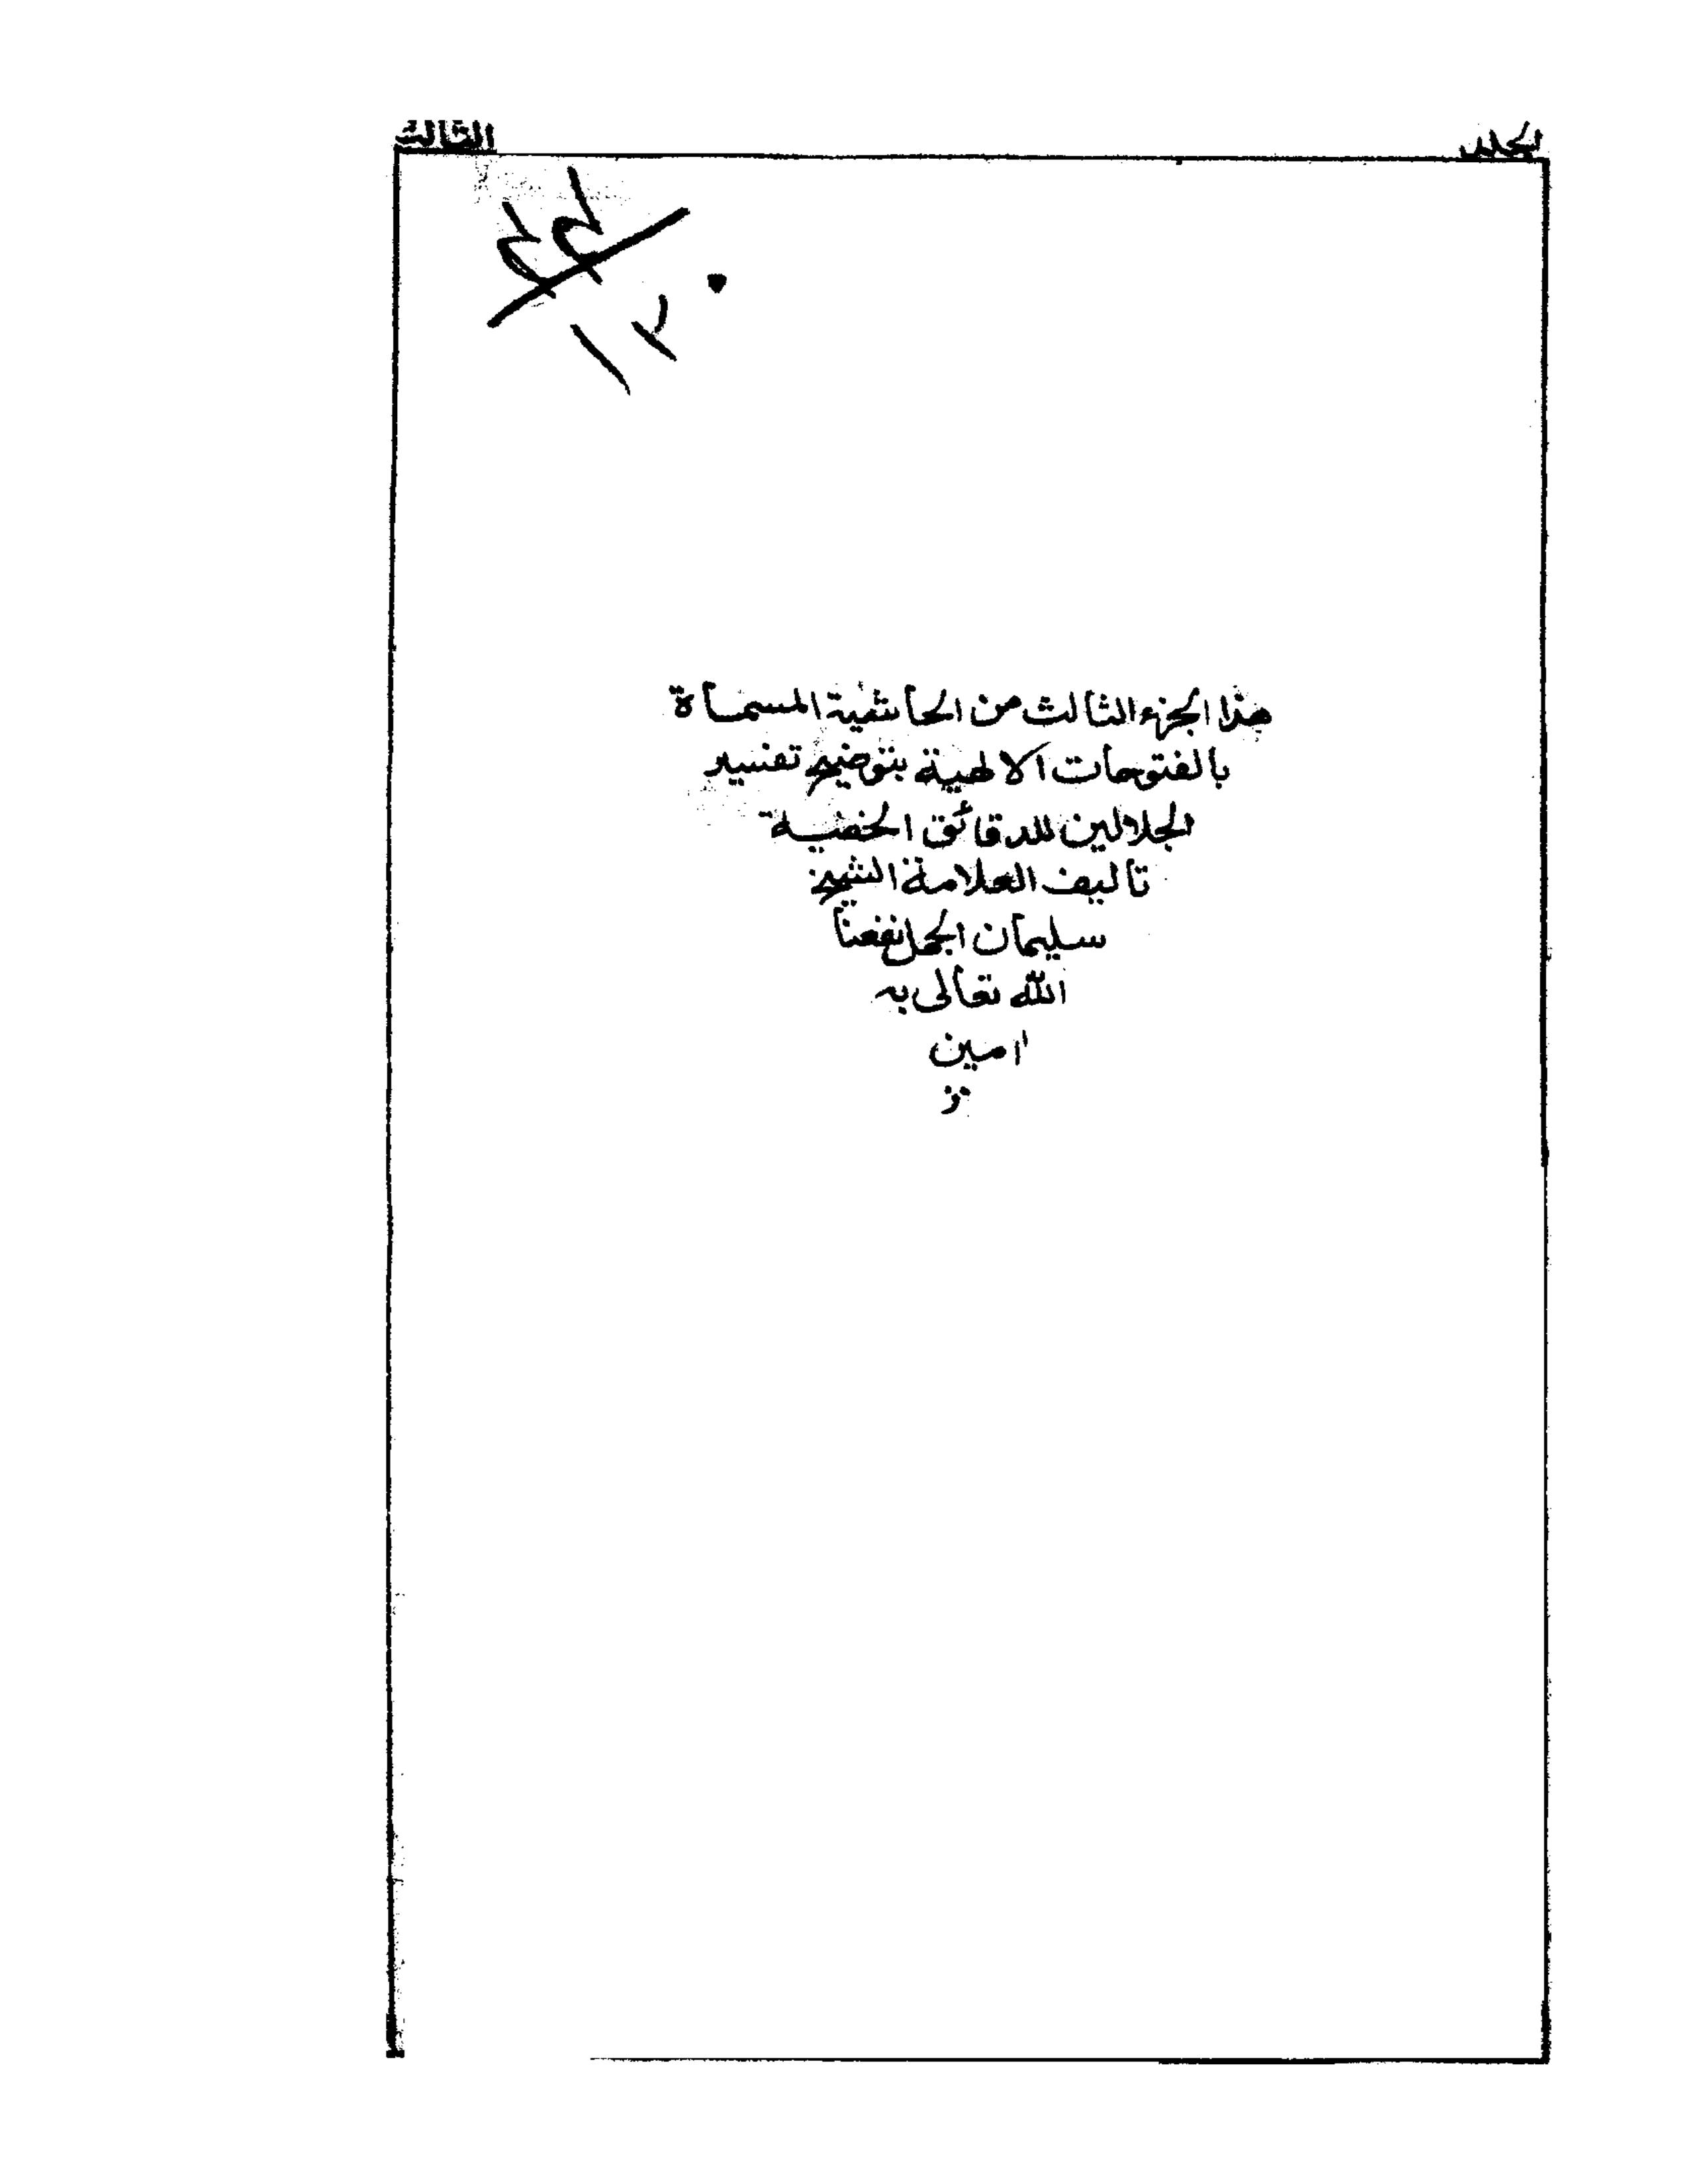 المجلد الثالث
هذا الجزء الثالث من الحاشية المسماة
بالفتوحات الالهية بتوضيح تفسير
الجلالين للدقائق الخفية
تأليف العلامة الشيخ
سليمان الجمل نفعنا
الله تعالى به
امين